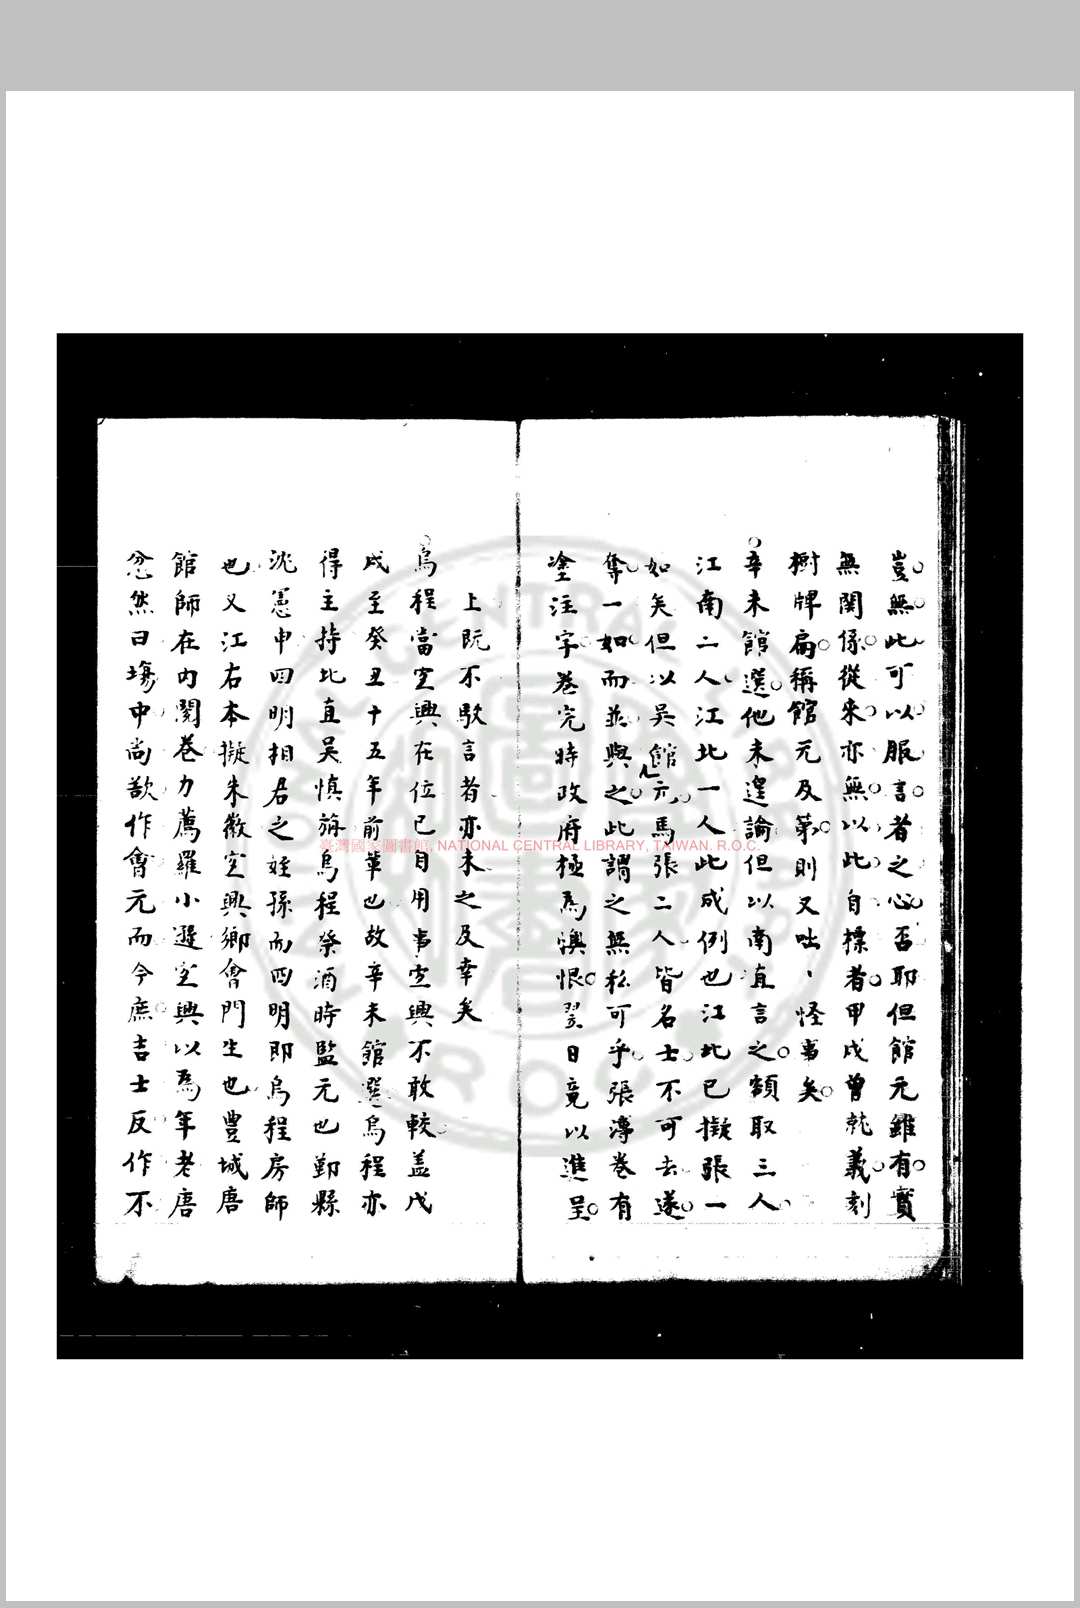 豈無此可以服言者之心否耶但館元雖有實
無関係從来亦無以此自標者甲戌曾就義刻
樹牌扁稱館元及第則又咄、怪事矣
辛未館選他未遑論但以南直言之額取三人
江南二人江北一人此成例也江北已擬張一
如矣但以吳館元馬張二人皆名士不可去遂
奪一如而並與之此謂之無私可乎張溥卷有
塗注字卷完時政府極為懊恨翌日竟以進呈
上既不駁言者亦未之及幸矣
烏程當宜興在位已自用事宜興不敢較蓋戊
戌至癸丑十五年前輩也故辛未館選烏程亦
得主持北直吳慎旃烏程祭酒時監元也鄞縣
沈憲申四明相君之姪孫而四明即烏程房師
也又江右本擬朱徽宜興鄉會門生也豐城唐
館師在內閣卷力薦羅小遜宜興以為年老唐
忿然曰塲中尚欲作會元而今庶吉士反作不
臺灣國家圖書館, NATIONAL CENTRAL LIBRARY, TAIWAN. R.O.C.